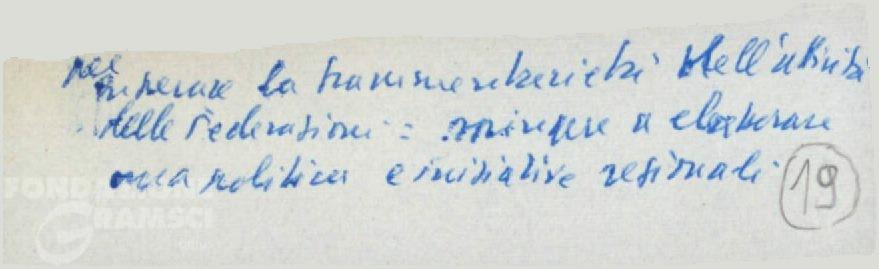 per superare la frammentarietà dell'attività
delle Federazioni: spingere a elaborare
una politica e iniziative regionali.
19
FONDAZIONE
GRAMSCI